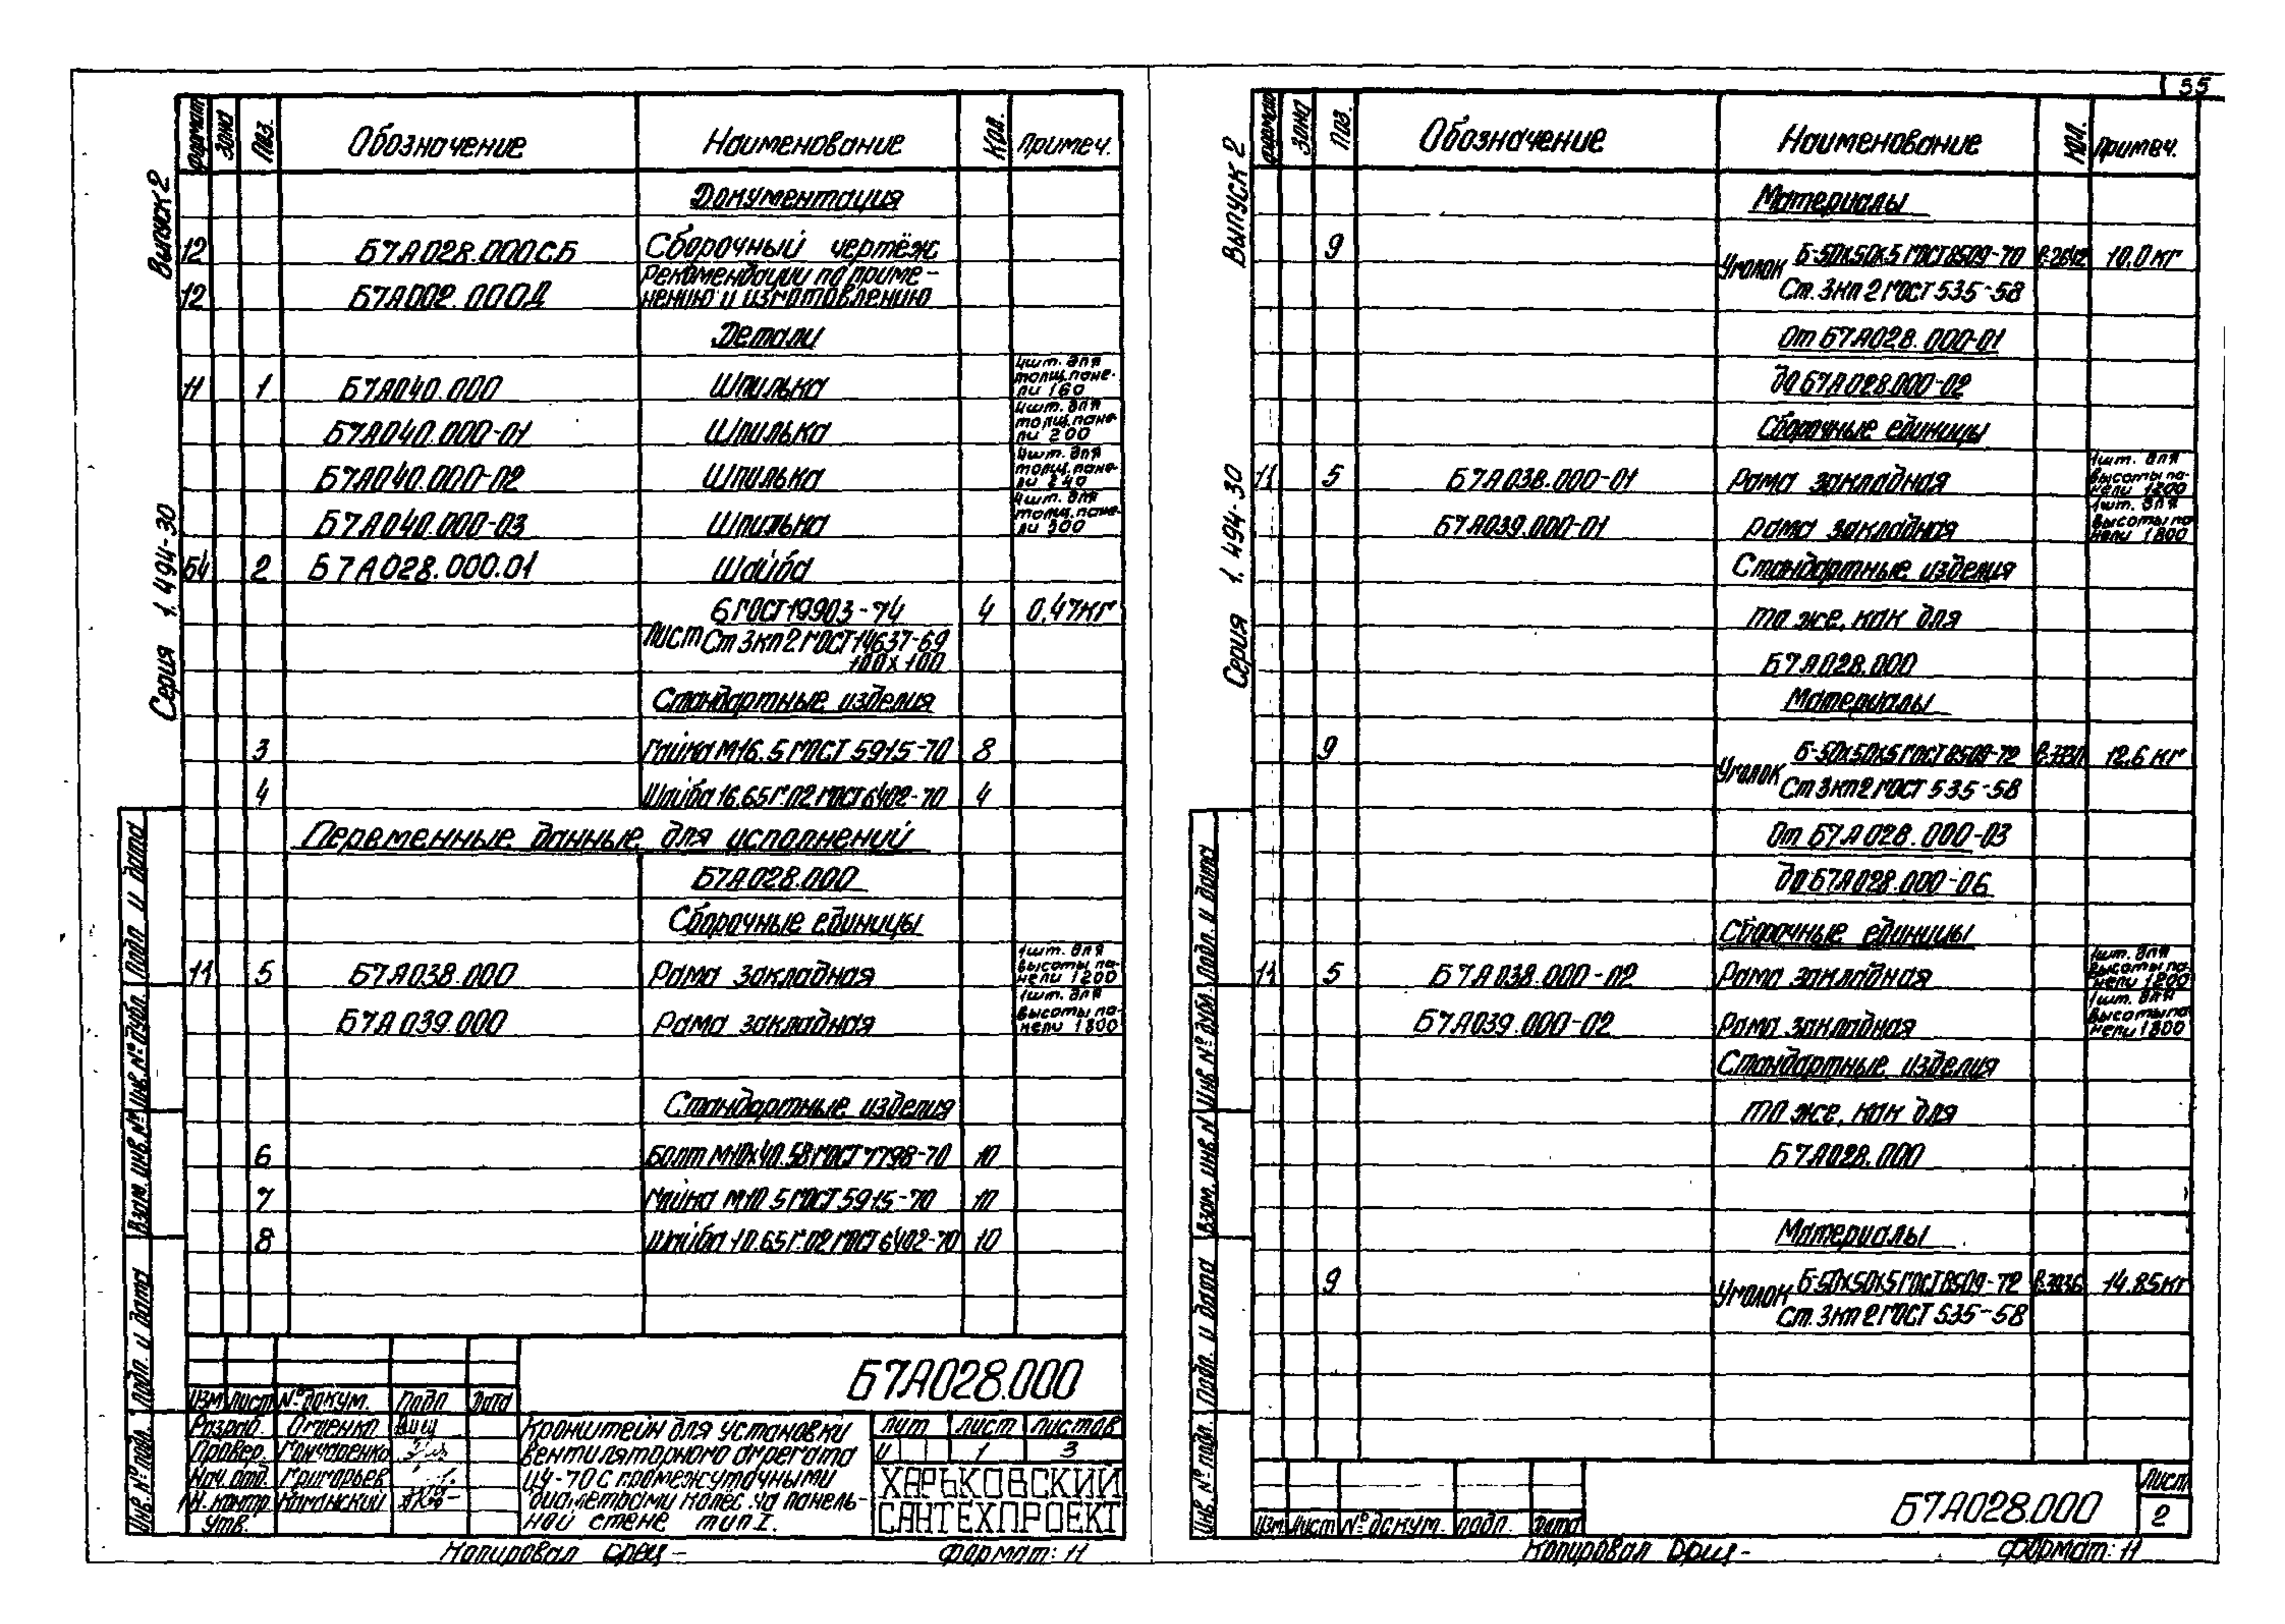 55
Выпуск 2
Серия 1.494-30
Формат Зона Поз. Обозначение Наименование Кол. Примеч.
Документация
12 Б7А028.000СБ Сборочный чертёж
12 Б7А002.000Д Рекомендации по приме-
нению и изготовлению
Детали
11 1 Б7А040.000 Шпилька 4шт. для толщ. пане- ли 160
Б7А040.000-01 Шпилька 4шт. для толщ. пане- ли 200
Б7А040.000-02 Шпилька 4шт. для толщ. пане- ли 240
Б7А040.000-03 Шпилька 4шт. для толщ. пане- ли 300
Б4 2 Б7А028.000.01 Шайба
6 ГОСТ 19903-74 4 0,47кг
Лист Ст 3кп2 ГОСТ 14637-69
100х100
Стандартные изделия
3 Гайка М16.5 ГОСТ 5915-70 8
4 Шайба 16.65Г.02 ГОСТ 6402-70 4
Переменные данные для исполнений
Б7А028.000
Сборочные единицы
11 5 Б7А038.000 Рама закладная 1шт. для высоты па- нели 1200
Б7А039.000 Рама закладная 1шт. для высоты па- нели 1800
Стандартные изделия
6 Болт М10х40.58 ГОСТ 7798-70 10
7 Гайка М10.5 ГОСТ 5915-70 10
8 Шайба 10.65Г.02 ГОСТ 6402-70 10
Подп. и дата
Инв. № дубл.
Взам. инв. №
Подп. и дата
Инв. № подл.
Б7А028.000
Изм Лист № докум. Подп Дата
Разраб.
Провер. Гончаренко
Нач. отд. Григорьев
Н. контр. Каганский
Утв.
Кронштейн для установки
вентиляторного агрегата
Ц4-70 с промежуточными
диаметрами колёс на панель-
ной стене тип I.
Лит Лист Листов
И 1 3
ХАРЬКОВСКИЙ
САНТЕХПРОЕКТ
Копировал Формат: 11
Выпуск 2
Серия 1.494-30
Формат Зона Поз. Обозначение Наименование Кол. Примеч.
Материалы
9 Уголок Б-50х50х5 ГОСТ 8509-70 ℓ-2642 10,0 кг
Ст. 3кп2 ГОСТ 535-58
От Б7А028.000-01
до Б7А028.000-02
Сборочные единицы
11 5 Б7А038.000-01 Рама закладная 1шт. для высоты па- нели 1200
Б7А039.000-01 Рама закладная 1шт. для высоты па- нели 1800
Стандартные изделия
то же, как для
Б7А028.000
Материалы
9 Уголок Б-50х50х5 ГОСТ 8509-72 12,6 кг
Ст 3кп2 ГОСТ 535-58
От Б7А028.000-03
до Б7А028.000-06
Сборочные единицы
11 5 Б7А038.000-02 Рама закладная 1шт. для высоты па- нели 1200
Б7А039.000-02 Рама закладная 1шт. для высоты па- нели 1800
Стандартные изделия
то же, как для
Б7А028.000
Материалы
9 Уголок Б-50х50х5 ГОСТ 8509-72 14,85кг
Ст. 3кп2 ГОСТ 535-58
Подп. и дата
Инв. № дубл.
Взам. инв. №
Подп. и дата
Инв. № подл.
Изм Лист № докум. Подп. Дата
Б7А028.000
Лист
2
Копировал Формат: 11